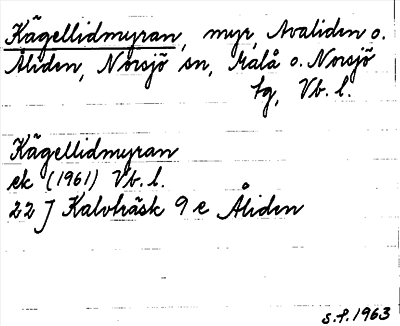 Kägellidmyran, myr, Avaliden o.
Åliden, Norsjö sn, Malå o. Norsjö
tg, Vb. l.
Kägellidmyran
ek (1961) Vb. l.
22 J Kalvträsk 9 e Åliden
S.f. 1963